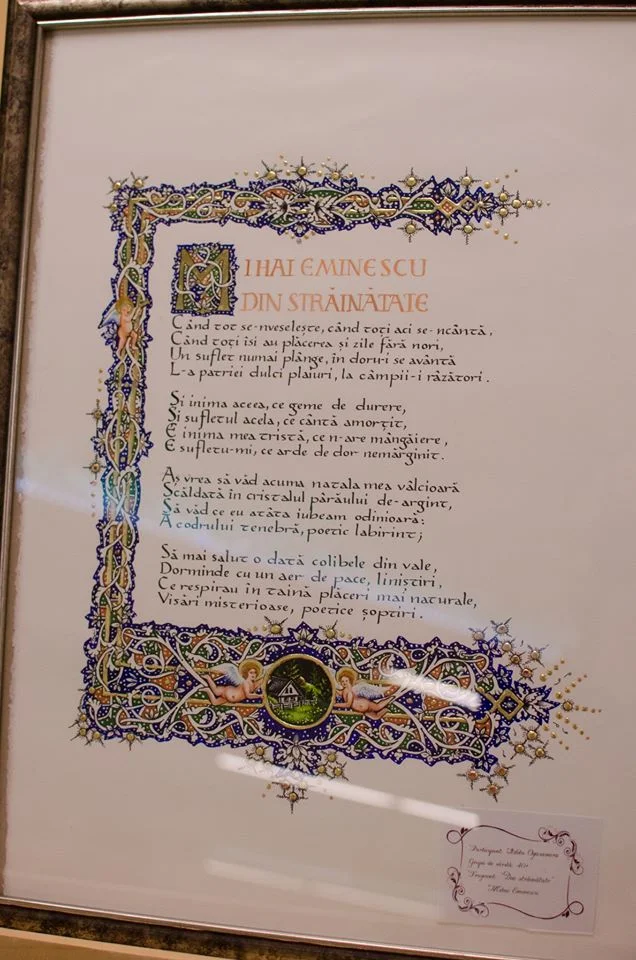 MIHAI EMINESCU
DIN STRĂINĂTATE
Când tot se-nveselește, când toți aci se-ncântă,
Când toți își au plăcerea și zile fără nori,
Un suflet numai plânge, în doru-i se avântă
L-a patriei dulci plaiuri, la câmpii-i râzători.
Și inima aceea, ce geme de durere,
Și sufletul acela, ce cântă amorțit,
E inima mea tristă, ce n-are mângâiere,
E sufletu-mi, ce arde de dor nemărginit.
Aș vrea să văd acuma natala mea vâlcioară
Scăldată în cristalul pârăului de-argint,
Să văd ce eu atâta iubeam odinioară:
A codrului tenebră, poetic labirint;
Să mai salut o dată colibele din vale,
Dorminde cu un aer de pace, liniștiri,
Ce respirau în taină plăceri mai naturale,
Visări misterioase, poetice șoptiri.
Participant:
Grupa de vârstă: 40+
Fragment: "Din străinătate"
Mihai Eminescu